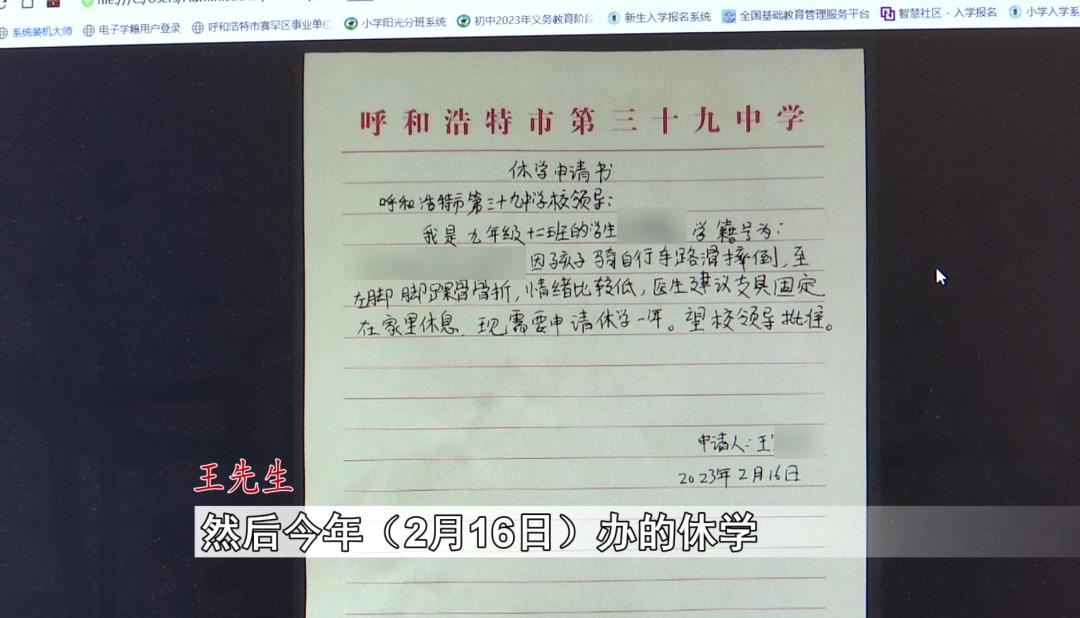 系统装机大师 电子学籍用户登录 呼和浩特市赛罕区事业单位 小学阳光分班系统 初中2023年义务教育阶段 新生入学报名系统 全国基础教育管理服务平台 智慧社区 - 入学报名 小学入学系
呼和浩特市第三十九中学
休学申请书
呼和浩特市第三十九中学校领导：
我是九年级十二班的学生 学籍号为：
因孩子骑自行车路滑摔倒，至
左脚脚踝骨骨折，情绪比较低，医生建议支具固定
在家里休息，现需要申请休学一年。望校领导批准。
申请人：王
2023年2月16日
王先生
然后今年（2月16日）办的休学